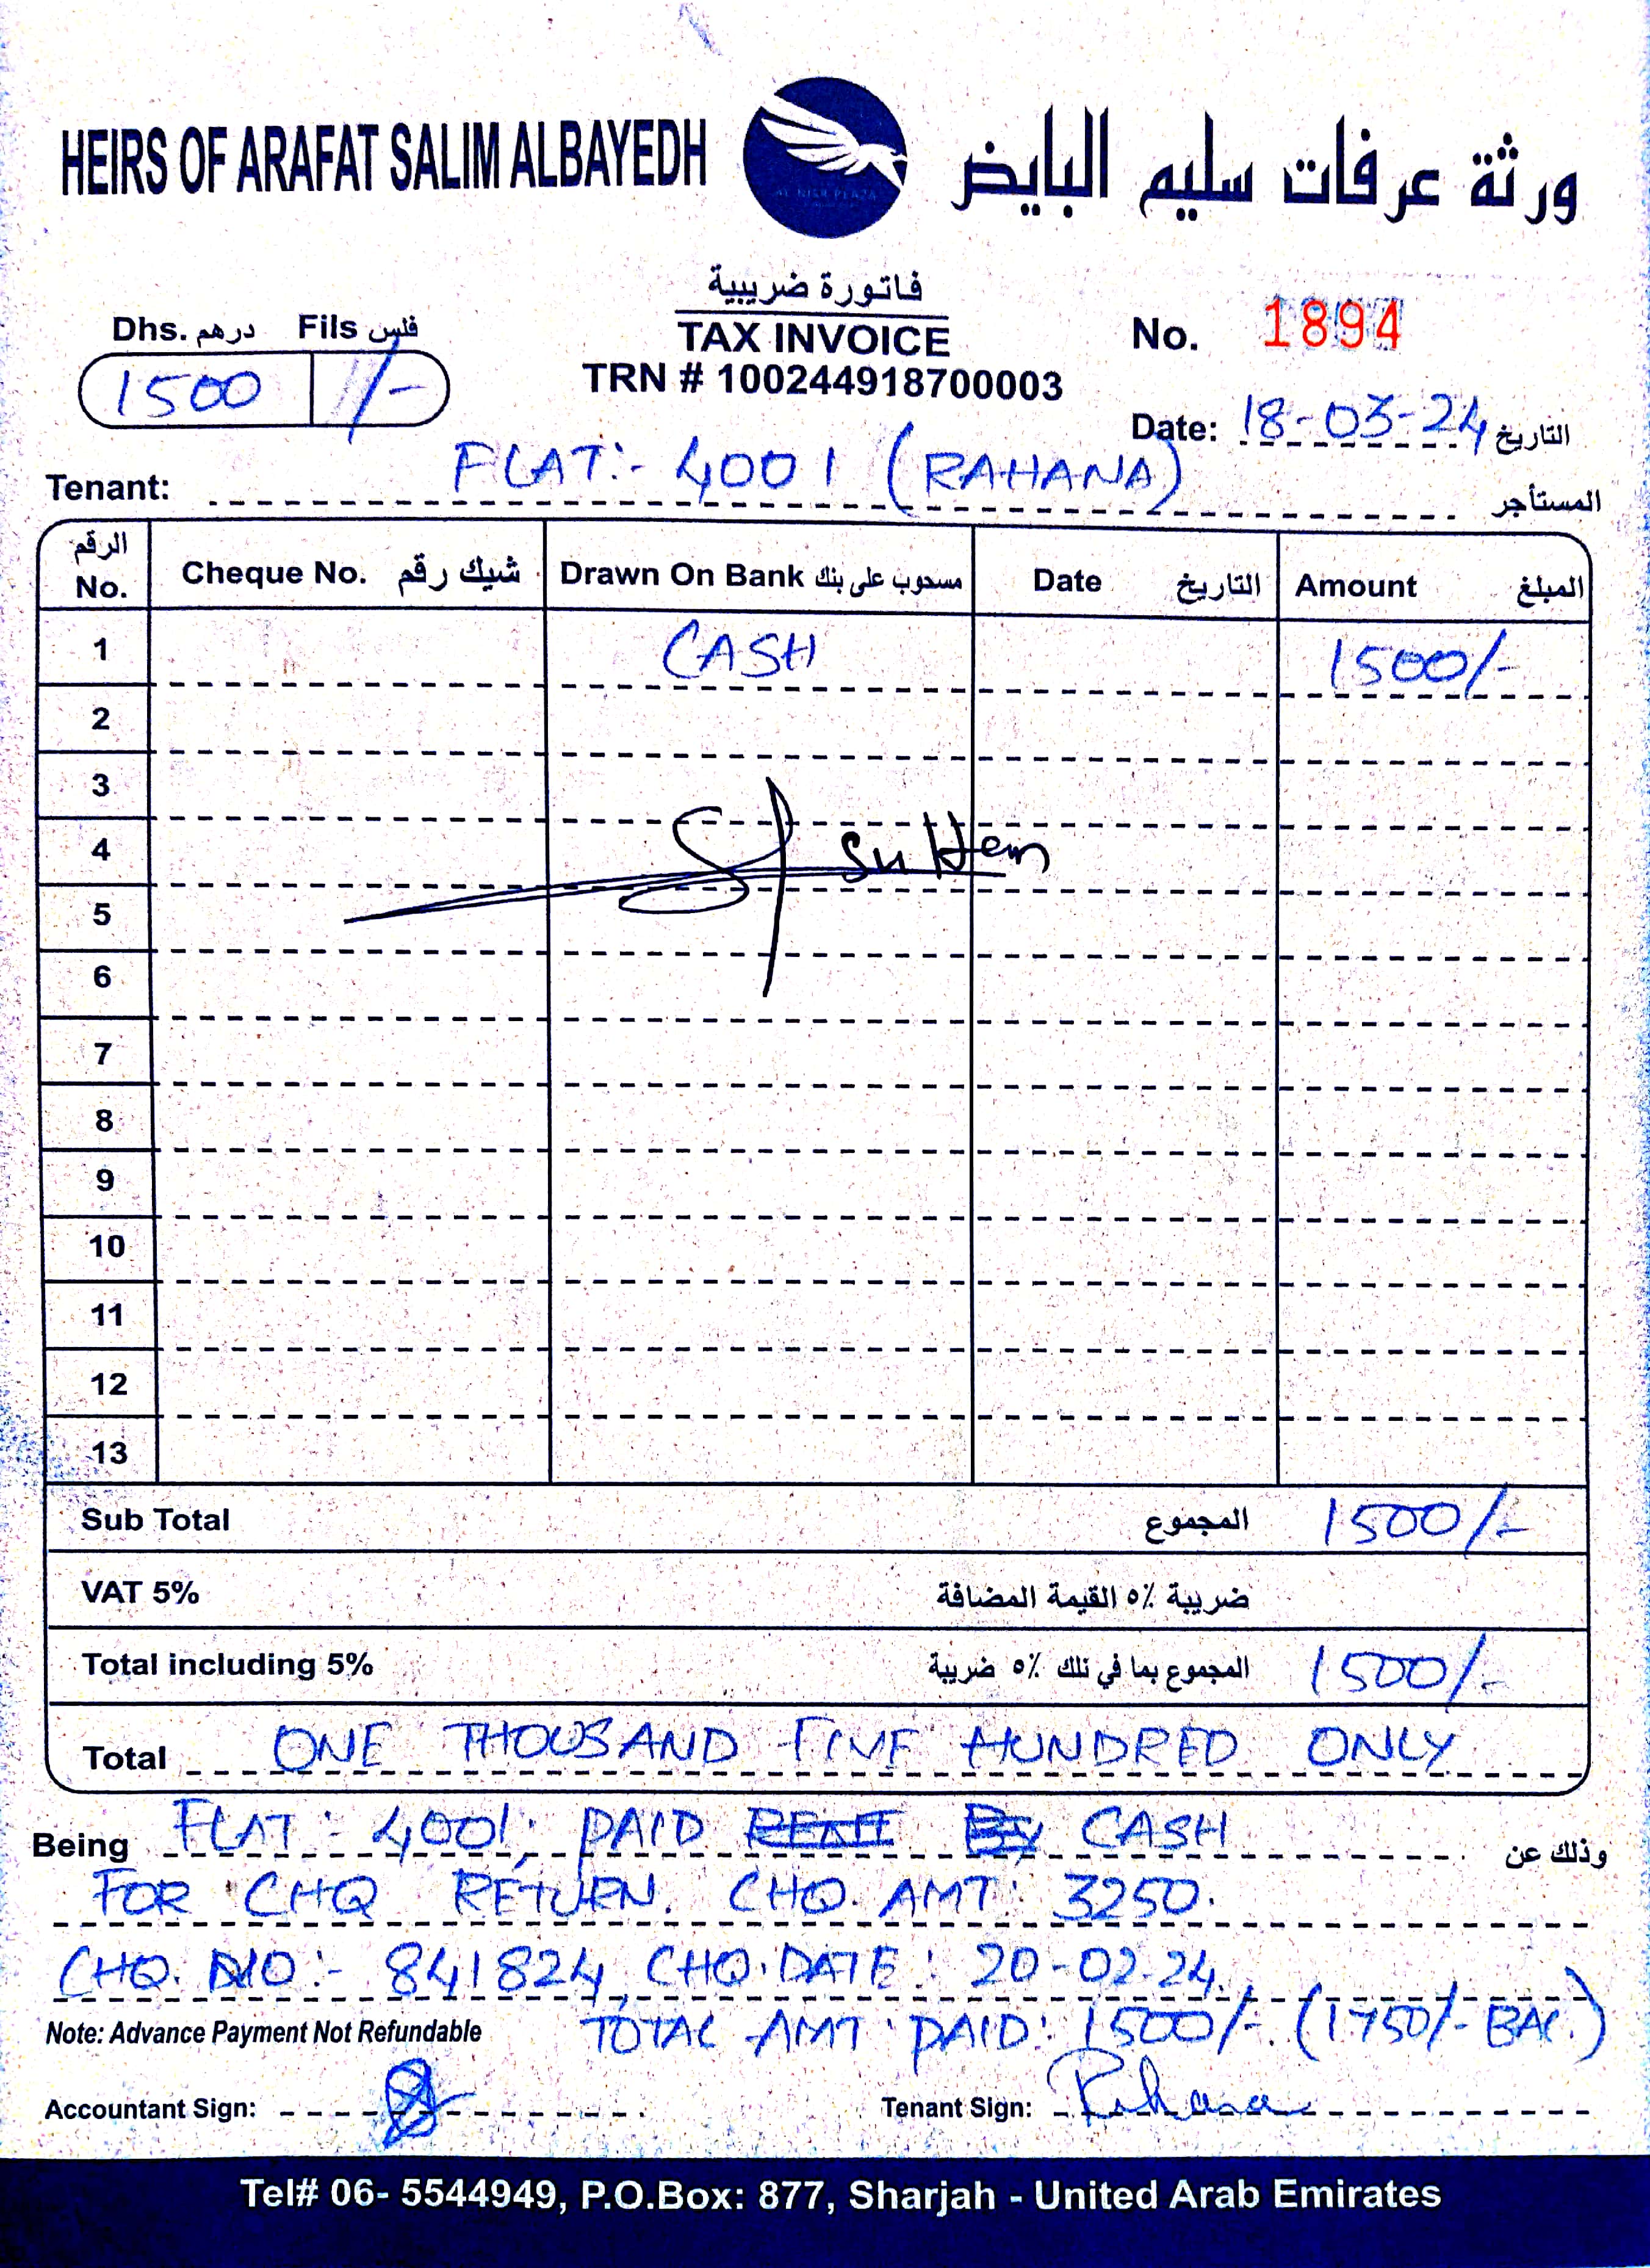 HEIRS OF ARAFAT SALIM ALBAYEDH ورثة عرفات سليم البايض
فاتورة ضريبية
TAX INVOICE
TRN # 100244918700003
Dhs. درهم Fils فلس
1500 /-
No. 1894
Date: 18-03-24 التاريخ
Tenant: FLAT:- 4001 (RAHANA) المستأجر
الرقم No. Cheque No. شيك رقم Drawn On Bank مسحوب على بنك Date التاريخ Amount المبلغ
1 CASH 1500/-
2
3
4
5
6
7
8
9
10
11
12
13
Sub Total المجموع 1500/-
VAT 5% ضريبة ٥٪ القيمة المضافة
Total including 5% المجموع بما في ذلك ٥٪ ضريبة 1500/-
Total ONE THOUSAND FIVE HUNDRED ONLY
Being FLAT: 4001, PAID RENT BY CASH وذلك عن
FOR CHQ RETURN. CHQ. AMT: 3250.
CHQ. NO:- 841824, CHQ. DATE: 20-02-24.
TOTAL AMT PAID: 1500/-. (1750/- BAL.)
Note: Advance Payment Not Refundable
Accountant Sign: Tenant Sign: Rihana
Tel# 06- 5544949, P.O.Box: 877, Sharjah - United Arab Emirates